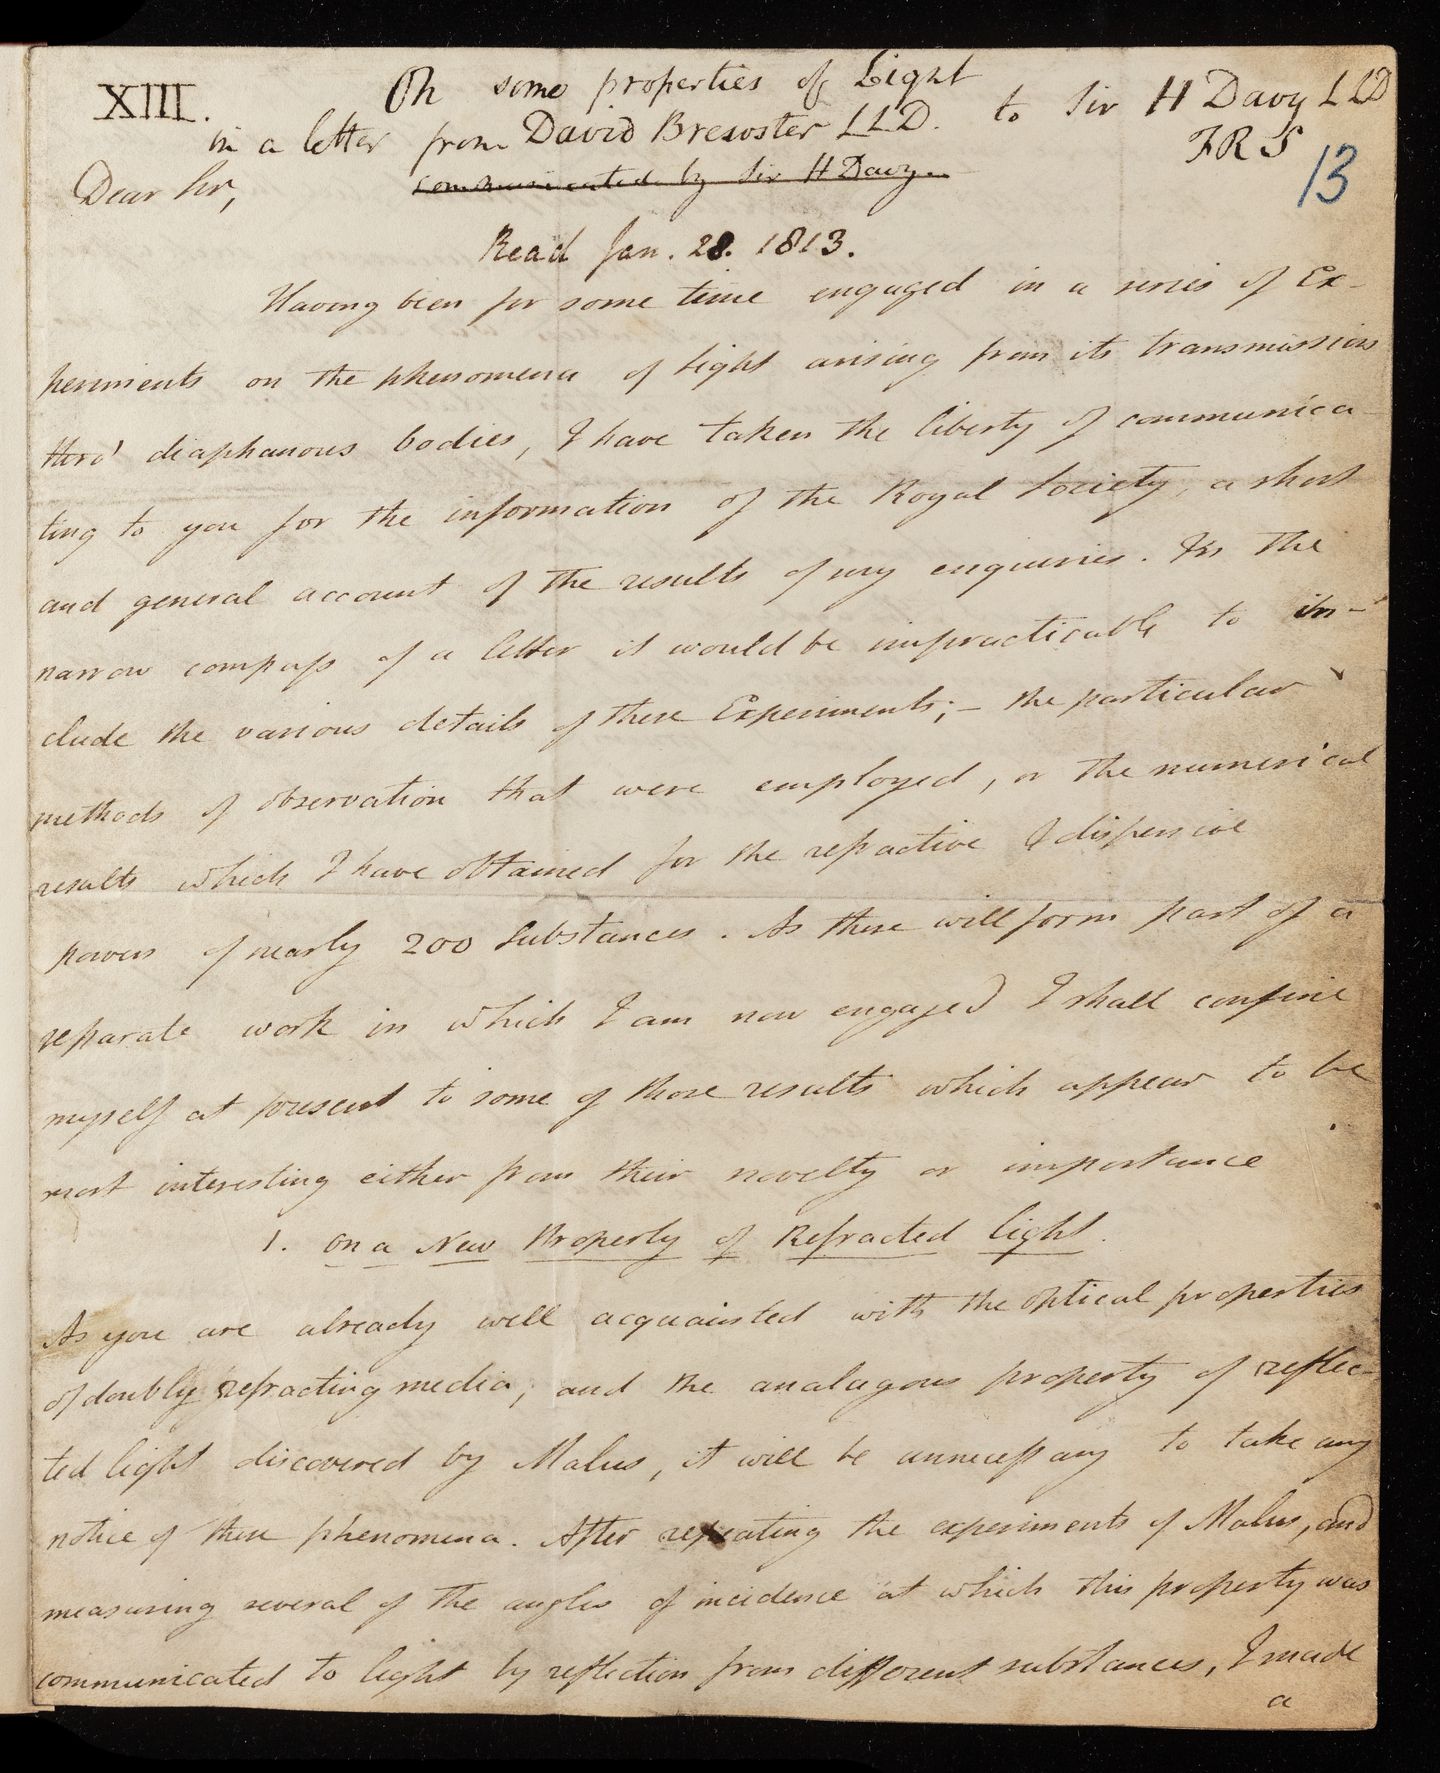 XIII. On some properties of Light
in a letter from David Brewster LLD. to Sir H Davy LLD
FRS
13
Dear Sir,
communicated by Sir H Davy.
Read Jan. 28. 1813.
Having been for some time engaged in a series of Ex-
periments on the phenomena of light arising from its transmission
thro' diaphanous bodies, I have taken the liberty of communica-
ting to you for the information of the Royal Society, a short
and general account of the results of my enquiries. In the
narrow compass of a letter it would be impracticable to in-
clude the various details of these Experiments; – the particular
methods of observation that were employed, or the numerical
results which I have obtained for the refractive & dispersive
powers of nearly 200 substances. As these will form part of a
separate work in which I am now engaged I shall confine
myself at present to some of those results which appear to be
most interesting either from their novelty or importance
1. On a New Property of Refracted light.
As you are already well acquainted with the optical properties
of doubly refracting media, and the analagous property of reflec-
ted light discovered by Malus, it will be unnecessary to take any
notice of these phenomena. After repeating the experiments of Malus, and
measuring several of the angles of incidence at which this property was
communicated to light by reflection from different substances, I made
a